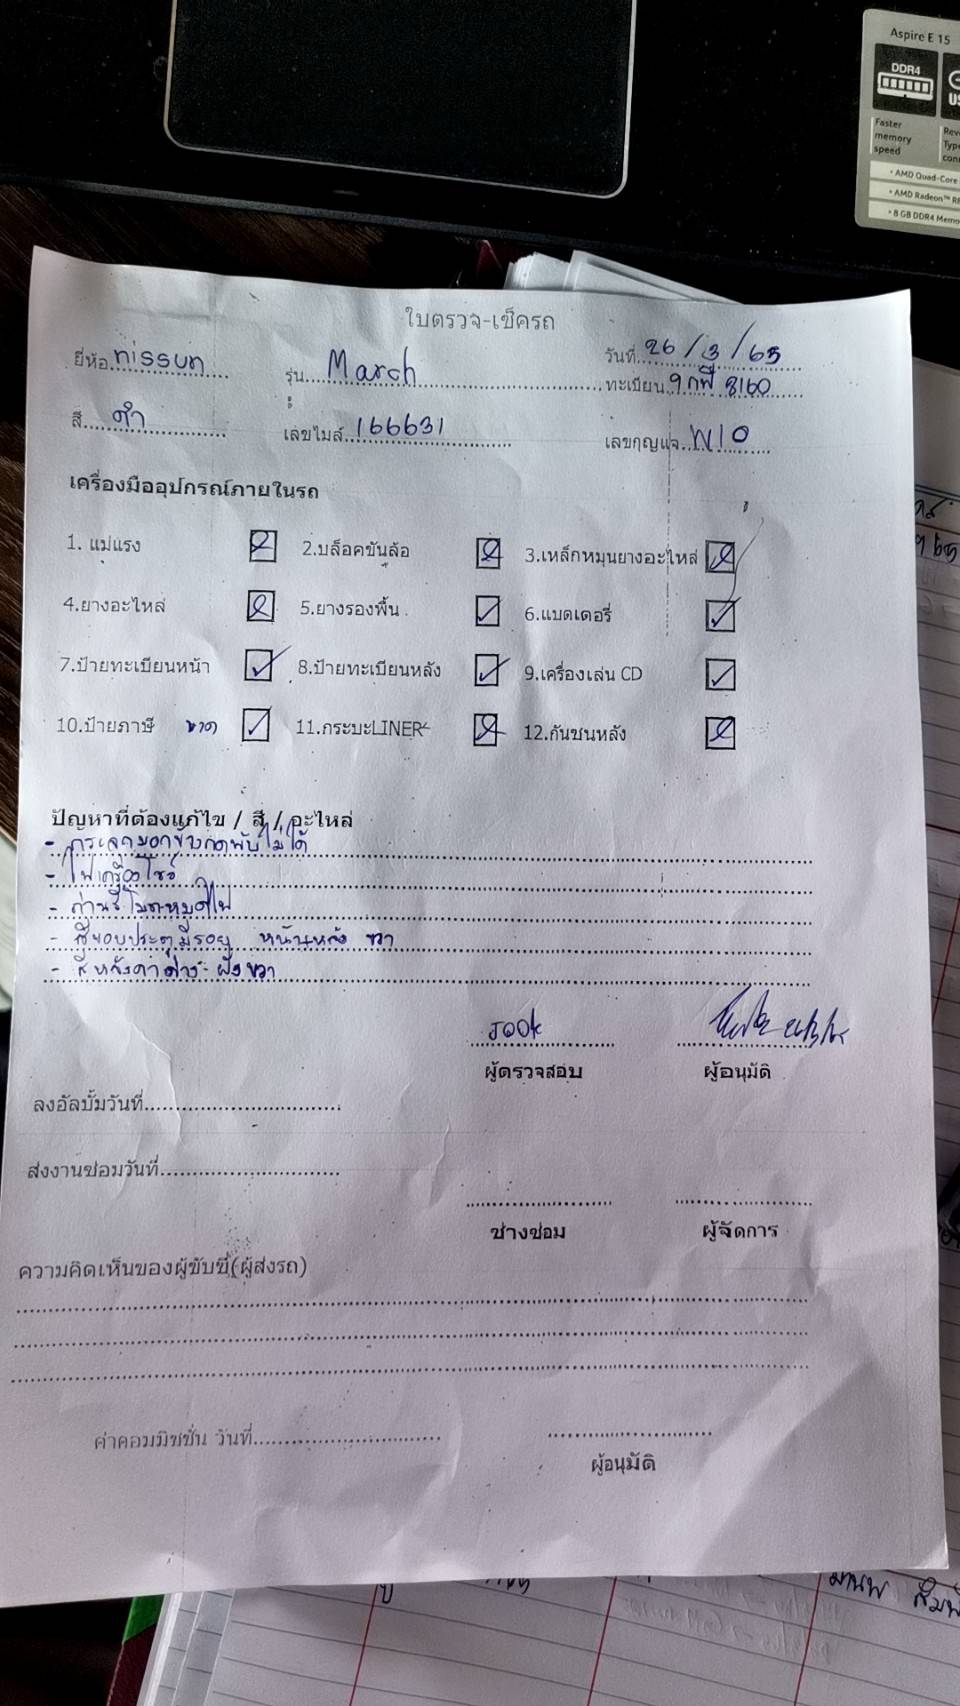 Aspire E 15
DDR4
Faster
memory
speed
• AMD Quad-Core
• AMD Radeon™
• 8 GB DDR4
ใบตรวจ-เช็ครถ
ยี่ห้อ nissun รุ่น March วันที่ 26/3/65
ทะเบียน 9กฬ 8160
สี ดำ เลขไมล์ 166631 เลขกุญแจ N10
เครื่องมืออุปกรณ์ภายในรถ
1. แม่แรง 2.บล็อคขันล้อ 3.เหล็กหมุนยางอะไหล่
4.ยางอะไหล่ 5.ยางรองพื้น 6.แบตเตอรี่
7.ป้ายทะเบียนหน้า 8.ป้ายทะเบียนหลัง 9.เครื่องเล่น CD
10.ป้ายภาษี ขาด 11.กระบะLINER 12.กันชนหลัง
ปัญหาที่ต้องแก้ไข / สี / อะไหล่
- กระจกมองข้างกดพับไม่ได้
- ไฟเครื่องโชว์
- ถ่านรีโมทหมดไฟ
- สีขอบประตูมีรอย หน้า หลัง ขวา
- สีหลังคาด่าง ฝั่งขวา
JOOK
ผู้ตรวจสอบ ผู้อนุมัติ
ลงอัลบั้มวันที่
ส่งงานซ่อมวันที่
ช่างซ่อม ผู้จัดการ
ความคิดเห็นของผู้ขับขี่(ผู้ส่งรถ)
ค่าคอมมิชชั่น วันที่
ผู้อนุมัติ